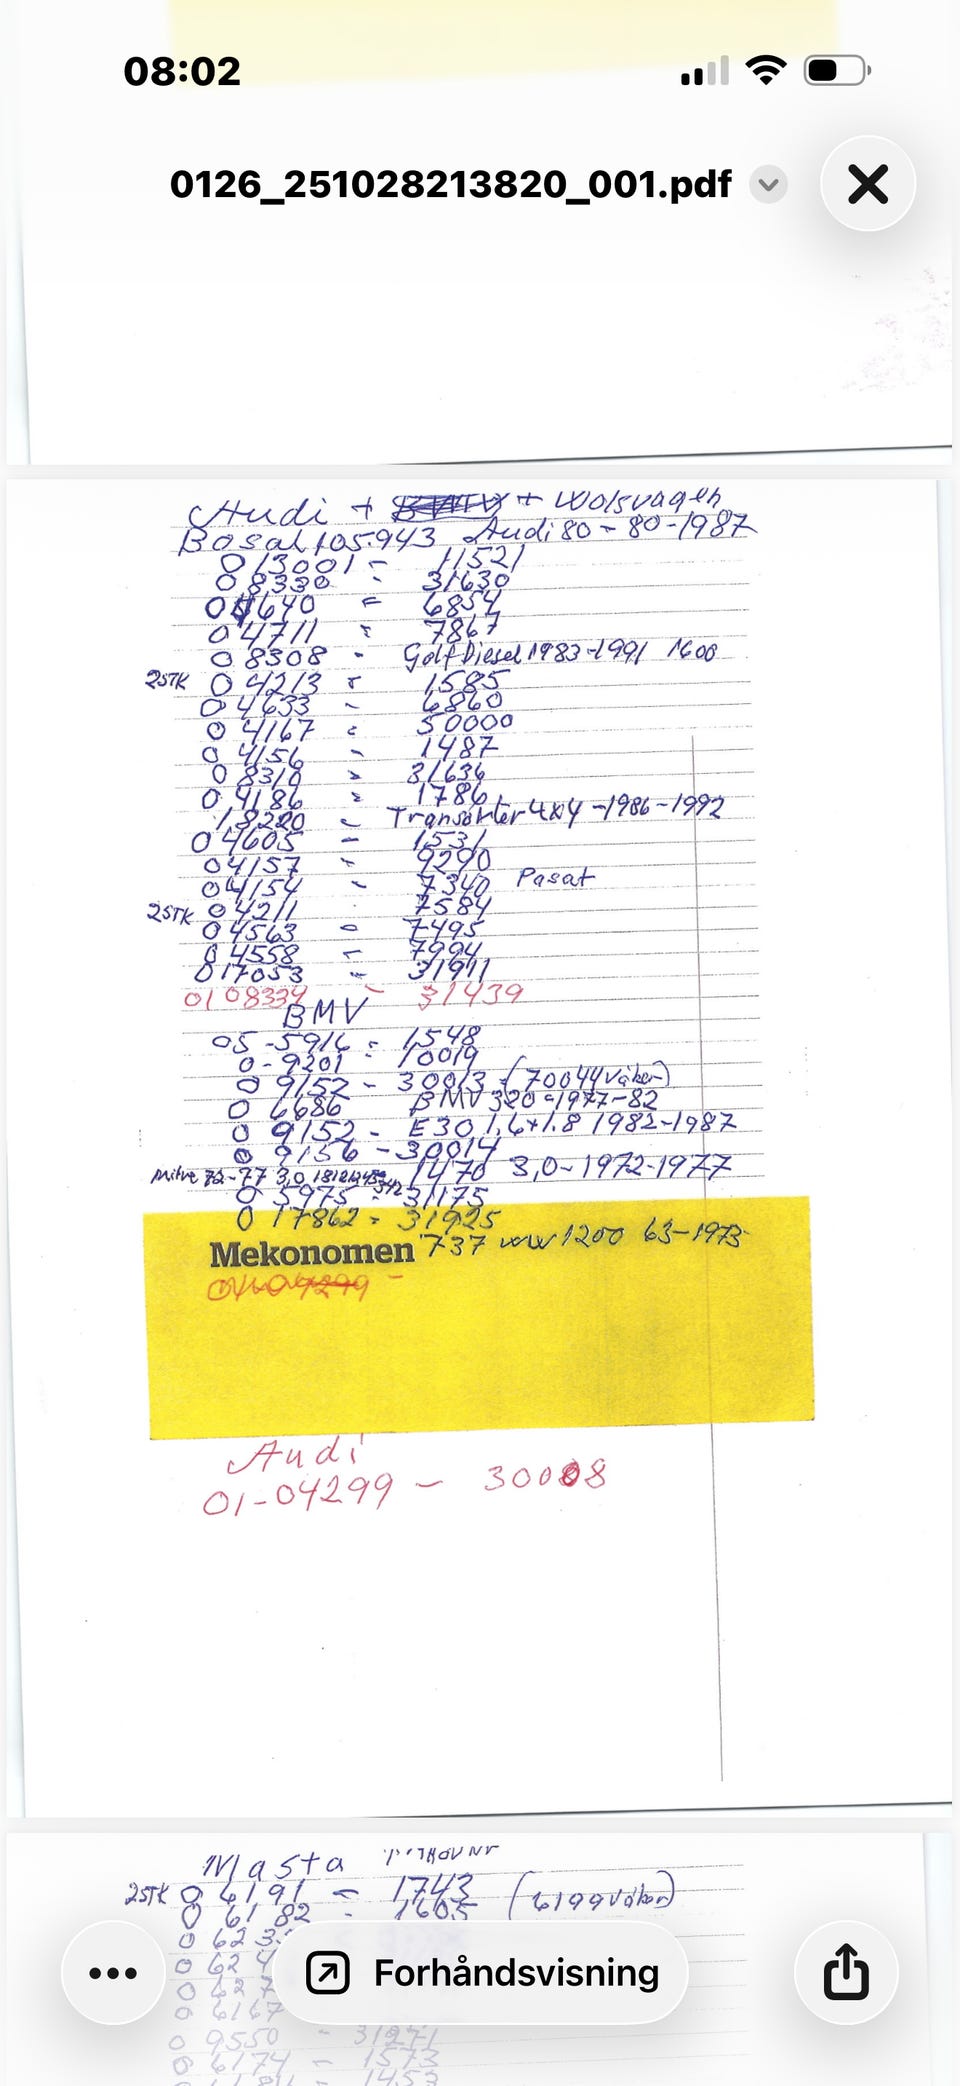 08:02
0126_251028213820_001.pdf
Audi + BMV + Wolsvagen
Bosal 105.943 Audi 80 - 80-1987
0 13001 - 11521
0 8330 - 31630
0 4640 = 6854
0 4711 = 7867
0 8308 - Golf Diesel 1983-1991 1600
2STK 0 4213 = 1585
0 4633 - 6860
0 4167 = 50000
0 4156 - 1487
0 8310 = 31636
0 4186 = 1786
18220 - Transorter 4x4 -1986-1992
0 4605 - 1531
0 4157 - 9290
0 4154 - 7340 Pasat
2STK 0 4211 - 7584
0 4563 = 7495
0 4558 - 7994
0 17053 = 31911
01 08334 - 31439
BMV
05-5916 = 1548
0-9201 = 10019
0 9152 - 30013 = (70044 Våker)
0 6686 BMV 320 - 1977-82
0 9152 - E30 1,6+1.8 1982-1987
0 9156 - 30014
Mitre 72-77 3,0 1470 3,0-1972-1977
0 5975 - 31175
0 17862 = 31925
Mekonomen 737 vww 1200 63-1973
Audi
01-04299 - 30008
Masta
2STK 0 6191 = 1743 (6199 Våker)
0 6182 - 1605
0 623
0 624
0 627
0 6167
0 9550 - 31271
0 6174 - 1573
1453
Forhåndsvisning